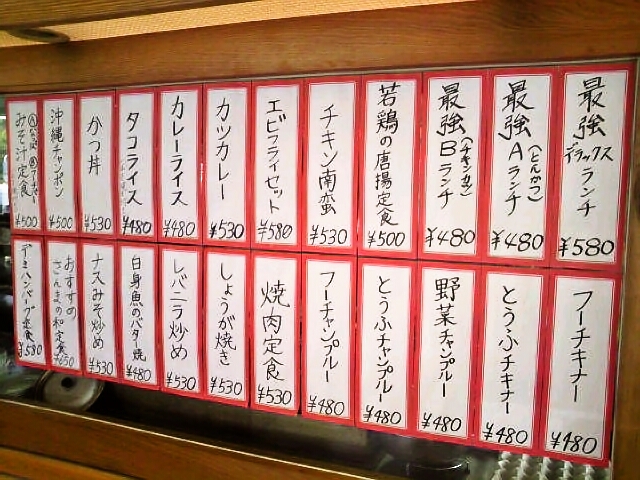 最強デラックスランチ ¥580
最強Aランチ(とんかつ) ¥480
最強Bランチ(チキン南) ¥480
若鶏の唐揚定食 ¥500
チキン南蛮 ¥530
エビフライセット ¥580
カツカレー ¥530
カレーライス ¥480
タコライス ¥480
かつ丼 ¥530
沖縄チャンポン ¥500
みそ汁定食 ¥500
フーチキナー ¥480
とうふチキナー ¥480
野菜チャンプルー ¥480
とうふチャンプルー ¥480
フーチャンプルー ¥480
焼肉定食 ¥530
しょうが焼き ¥530
レバニラ炒め ¥530
白身魚のバター焼 ¥480
ナスみそ炒め ¥530
おすすめ
さんまの和定食 ¥650
デミハンバーグ定食 ¥580